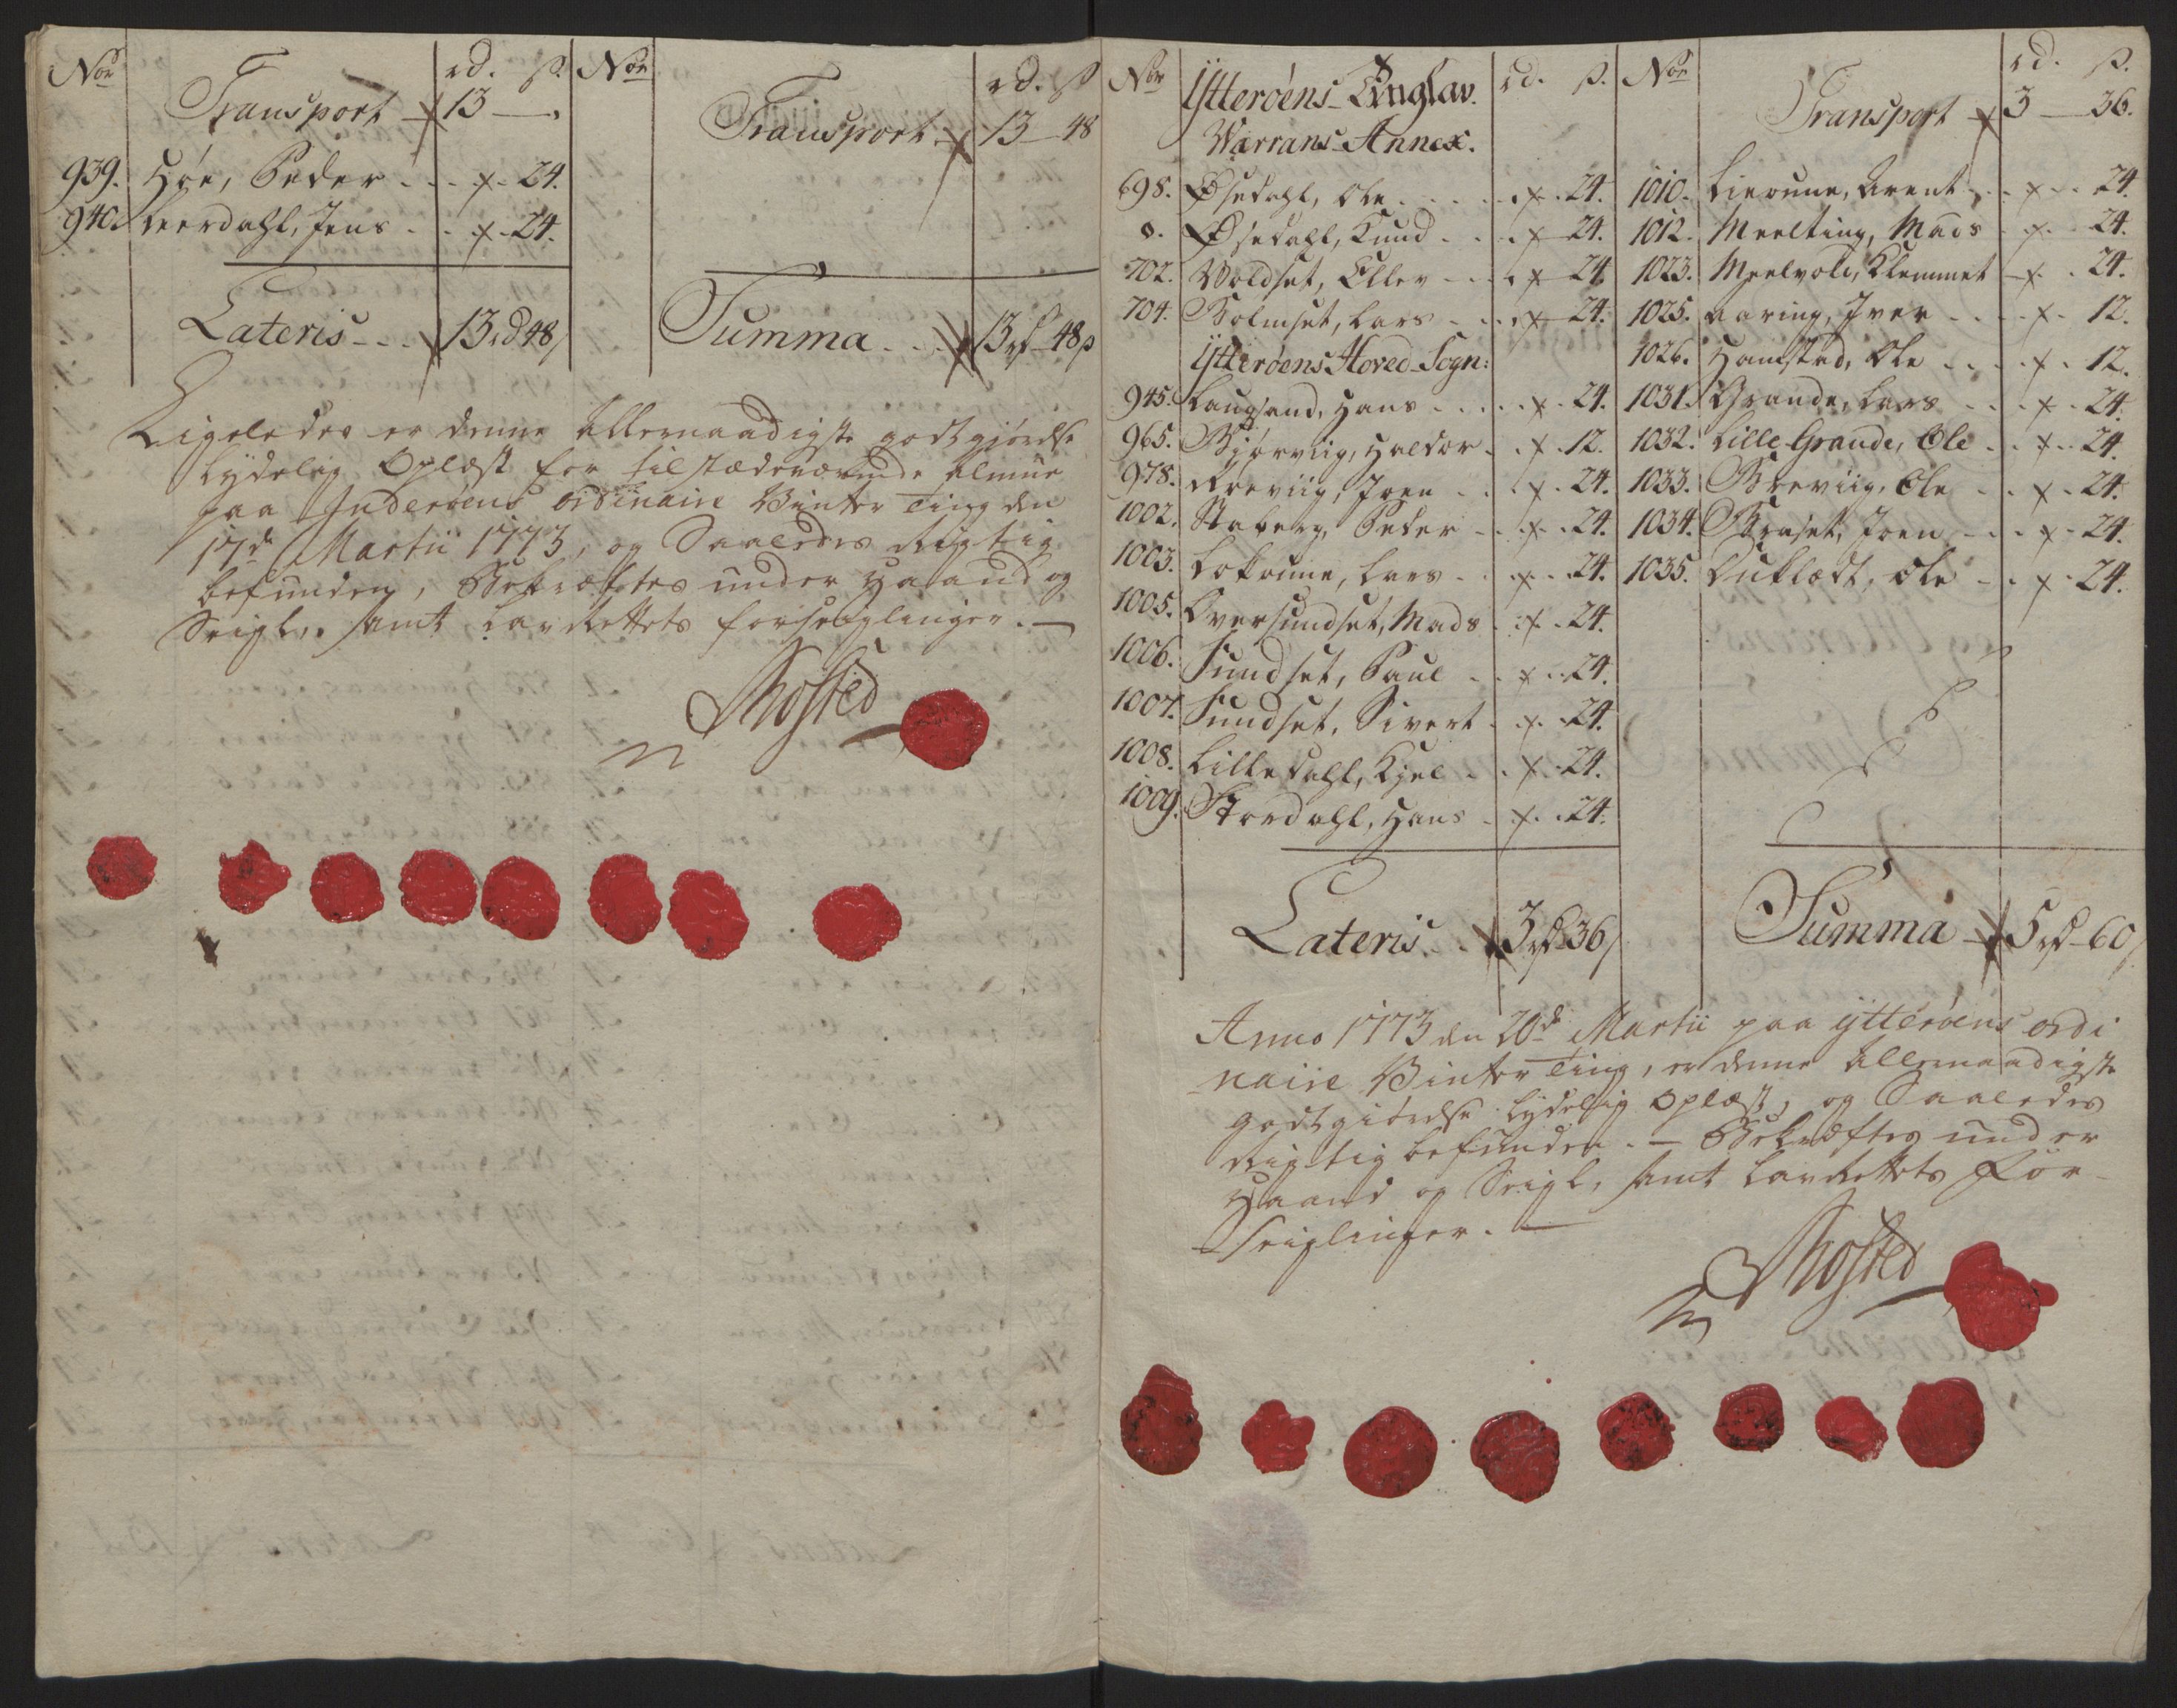 Nor
rd. ß.
Transport 13 —
939. Høe, Peder . . . 24.
940. Leerdahl, Jens . . 24.
Lateris - - - 13 rd 48ß
Nor
rd. ß
Transport 13 - 48
Summa . . . 13 rd 48ß
Ligeledes er denne Allernaadigste godtgiørelse
lydelig Oplæst for tilstædeværende Almue
paa Inderøens ordinaire Vinter Ting den
17de Martii 1773, og Saaledes Rigtig
befunden, Bekræftes under Haand og
Seigl, samt LavRettets forseiglinger. —
Rhosted
Nor
rd. ß.
Ytterøens Tinglav.
Warrans Annex.
698. Øsedahl, Ole . . . . . 24.
o. Øsedahl, Knud . . . 24.
702. Woldset, Ellev . . . 24.
704. Bolmset, Lars . . . 24.
Ytterøens Hoved-Sogn:
945. Laugsand, Hans . . . . 24.
965. Biørviig, Haldor . . 12.
978. Røeviig, Joen . . . 24.
1002. Staberg, Peder . . . 24.
1003. Lokoune, Lars . . . 24.
1005. Oversundset, Mads . . 24.
1006. Sundset, Paul . . . 24.
1007. Sundset, Sivert . . 24.
1008. Lilledahl, Kjel . . . 24.
1009. Stordahl, Hans . . . 24.
Lateris . . 3 rd 36ß
Nor
rd. ß.
Transport 3 — 36.
1010. Lieroune, Arent . . . 24.
1012. Meelting, Mads . . 24.
1023. Meelvold, Klemmet . . 24.
1025. Aaring, Iver . . . . 12.
1026. Hamstad, Ole . . . 12.
1031. Grande, Lars . . . 24.
1032. Lille Grande, Ole . . 24.
1033. Breviig, Ole . . . 24.
1034. Braset, Joen . . . 24.
1035. Duklædt, Ole . . . 24.
Summa 5 rd 60ß
Anno 1773 den 20de Martii paa Ytterøens ordi
naire Vinter Ting, er denne Allernaadigste
godtgiørelse lydelig Oplæst, og Saaledes
Rigtig befunden. — Bekræftes under
Haand og Seigl, samt LavRettets For-
seiglinger. —
Rhosted